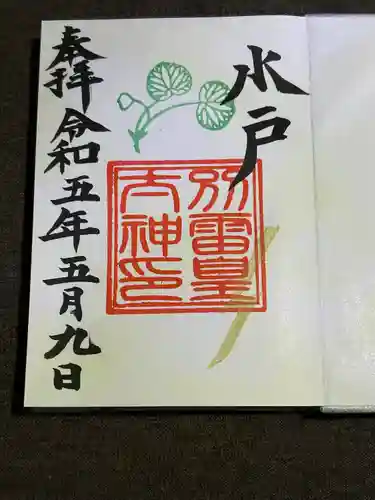 水戸
別雷皇
太神印
奉拝 令和五年五月九日